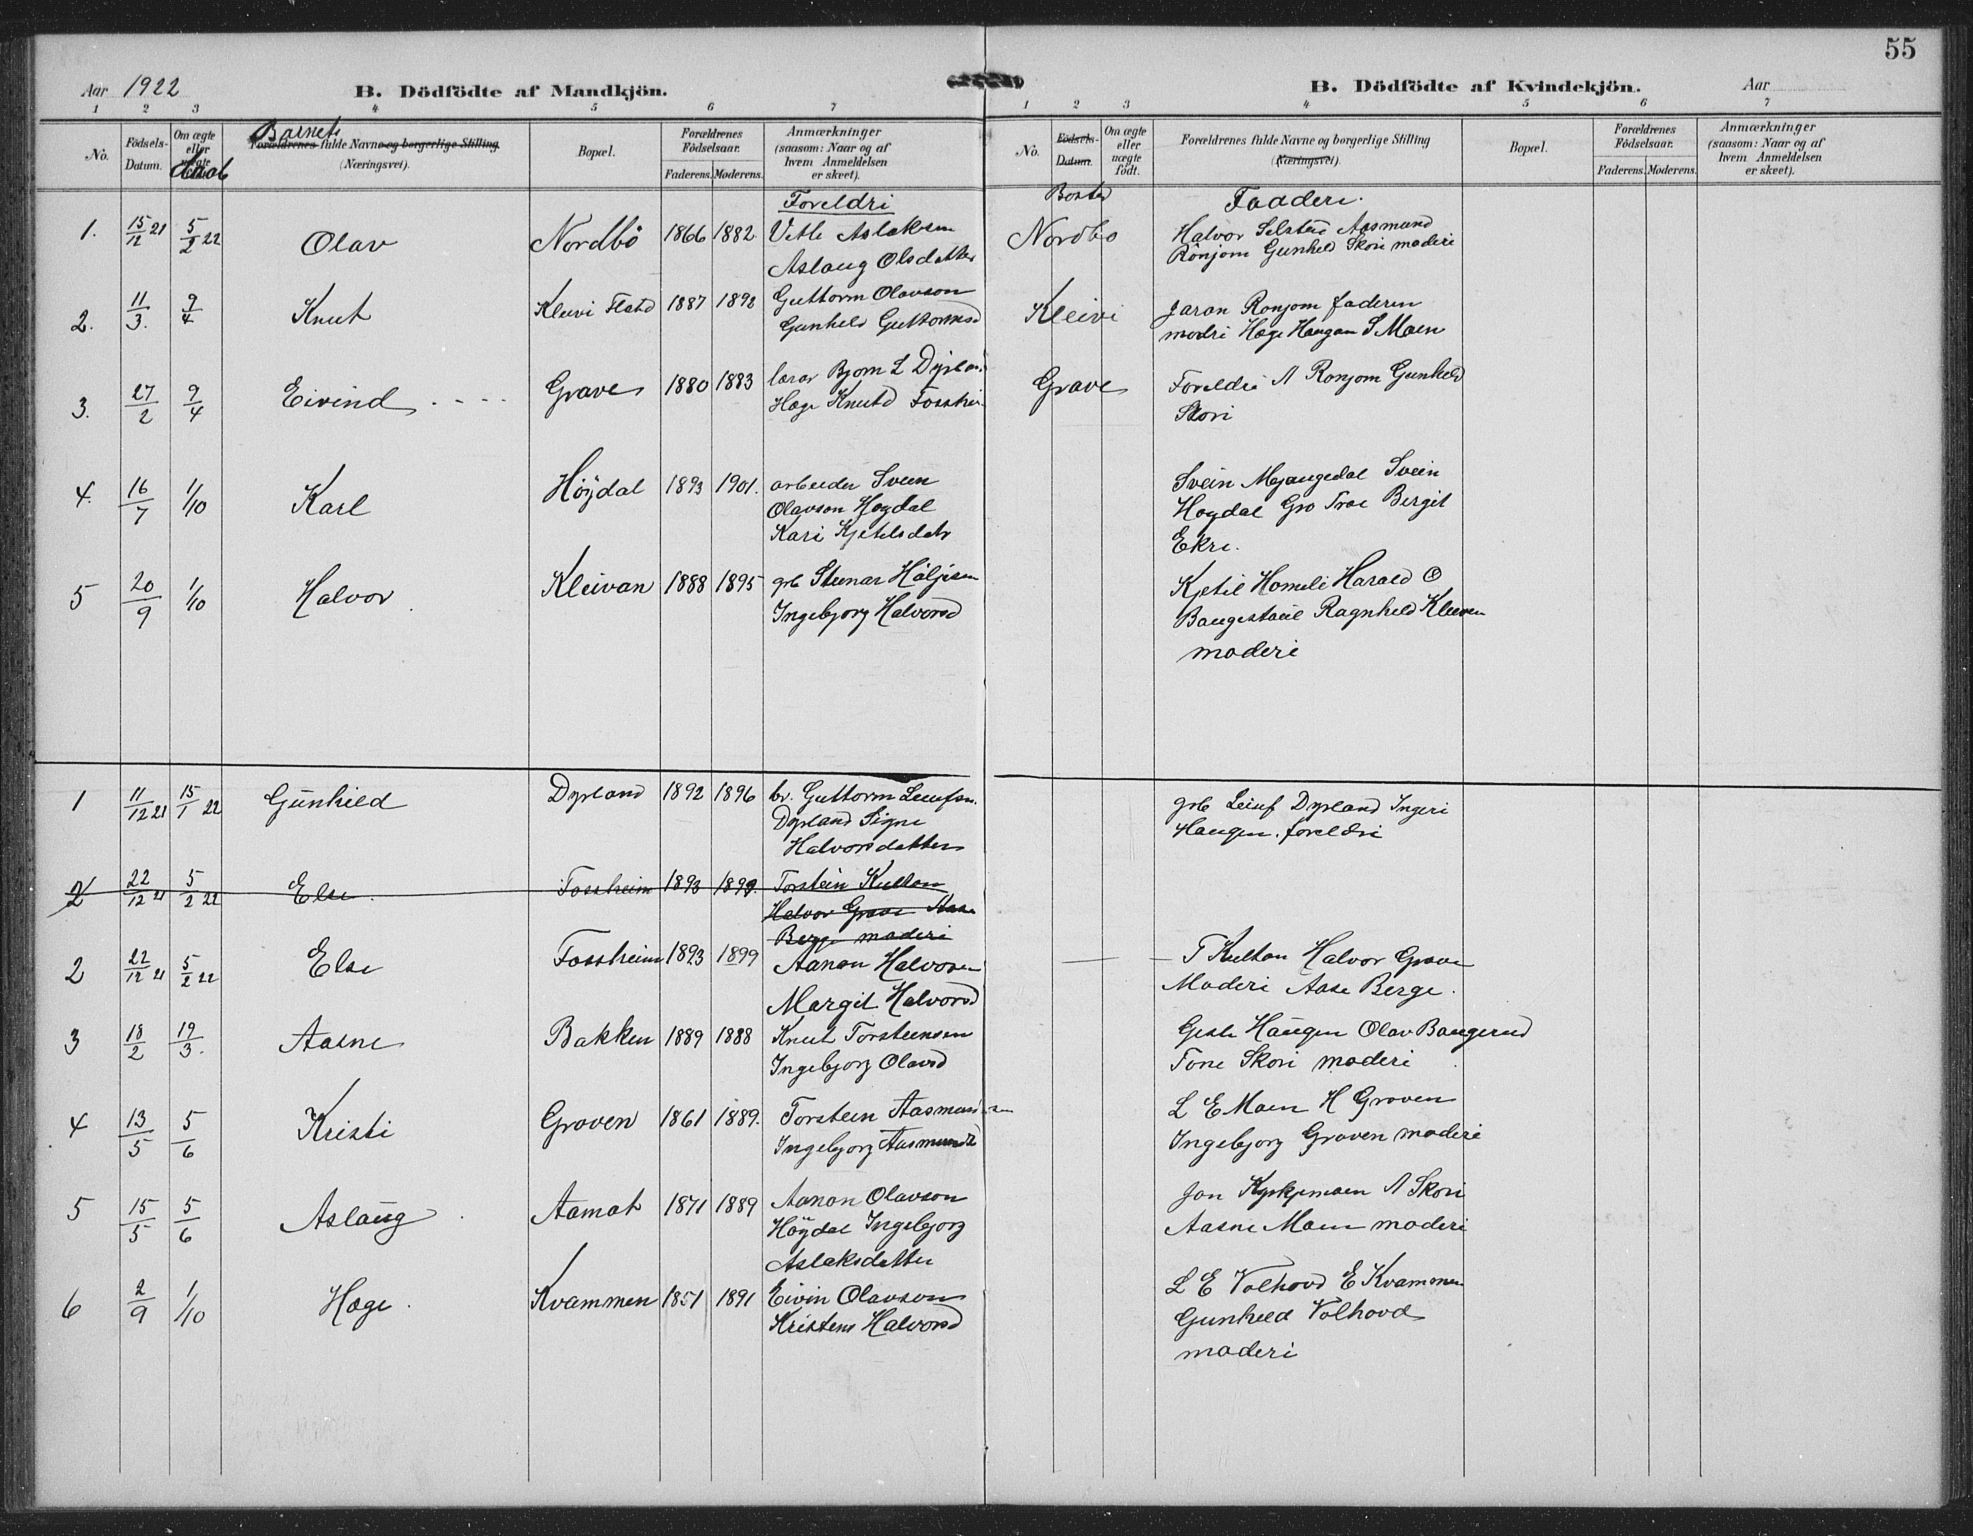 55
Aar 1922
B. Dödfödte af Mandkjön.
1 2 3 4 5 6 7
No.
Födsels-Datum.
Om ægte eller uægte
Daab
Barnets
Forældrenes fulde Navne og borgerlige Stilling
(Næringsvei).
Bopæl.
Forældrenes Födselsaar.
Faderens. Moderens.
Anmærkninger
(saasom: Naar og af
hvem Anmeldelsen
er skeet).
Foreldri
1. 15/12 21 5/2 22 Olav Nordbö 1866 1882 Vetle Aslaksen
Aslaug Olsdatter
2. 11/3. 9/4 Knut Kleivi 1887 1892 Guttorm Olavson
Gunhild Guttormsd
3. 27/2 9/4 Eivind Grave 1880 1883 lærar Bjorn L
Hæge Knutd
4. 16/7 1/10 Karl Höydal 1893 1901. arbeider Svein
Olavson Hoydal
Kari Kjetilsdatr
5 20/9 1/10 Halvor Kleivan 1888 1895 grb Steinar
Ingebjorg Halvorsd
1 11/12 21 15/1 22 Gunhild Dyrland 1892 1896 br. Guttorm
Dyrland Signe
Halvorsdatter
2 22/12 21 5/2 22 Else Fossheim 1893 1899. Torstein Kultan
Halvor Grave Aase
Berge moderi
2 22/12 21 5/2 22 Else Fossheim 1893 1899 Aanon Halvorsen
Margit Halvorsd
3 18/2 19/3. Aasne Bakken 1889 1888 Knut Torsteinsen
Ingebjorg Olavsd
4 13/5 5/6 Kristi Groven 1861 1889. Torstein
Ingebjorg
5 15/5 5/6 Aslaug Aamot 1871 1889 Aanon Olavson
Höydal Ingebjorg
Aslaksdatter
6 2/9 1/10 Hæge Kvammen 1851 1891 Eivin Olavson
Halvorsd
B. Dödfödte af Kvindekjön.
Aar
1 2 3 4 5 6 7
No.
Födsels-Datum.
Om ægte
eller
uægte
födt.
Forældrenes fulde Navne og borgerlige Stilling
(Næringsvei).
Bopæl.
Forældrenes
Födselsaar.
Faderens. Moderens.
Anmærkninger
(saasom: Naar og af
hvem Anmeldelsen
er skeet).
Fadderi.
Nordbo Halvor Aasmund
Rönjom Gunhild Skori moderi
Kleivi Jaran Ronjom faderen
modri Hæge Haugan S Moen
Grave Foreldri A Ronjom Gunhild
Skori
Svein Mjaugedal Svein
Hoydal Gro Bergit
Ekre.
Kjetil Homeli Harald O
Ragnhild
moderi
grb Leiuf Dyrland Ingeri
Haugen. foreldri
T Kultan Halvor Grave
Moderi Aase Berge.
Haugen Olav Baugerud
Tone Skori moderi
L E Moen H Groven
Ingebjorg Groven moderi
Jon A Skori
Aasne Moen moderi
L E Volhovd E Kvammen
Gunhild Volhovd
moderi